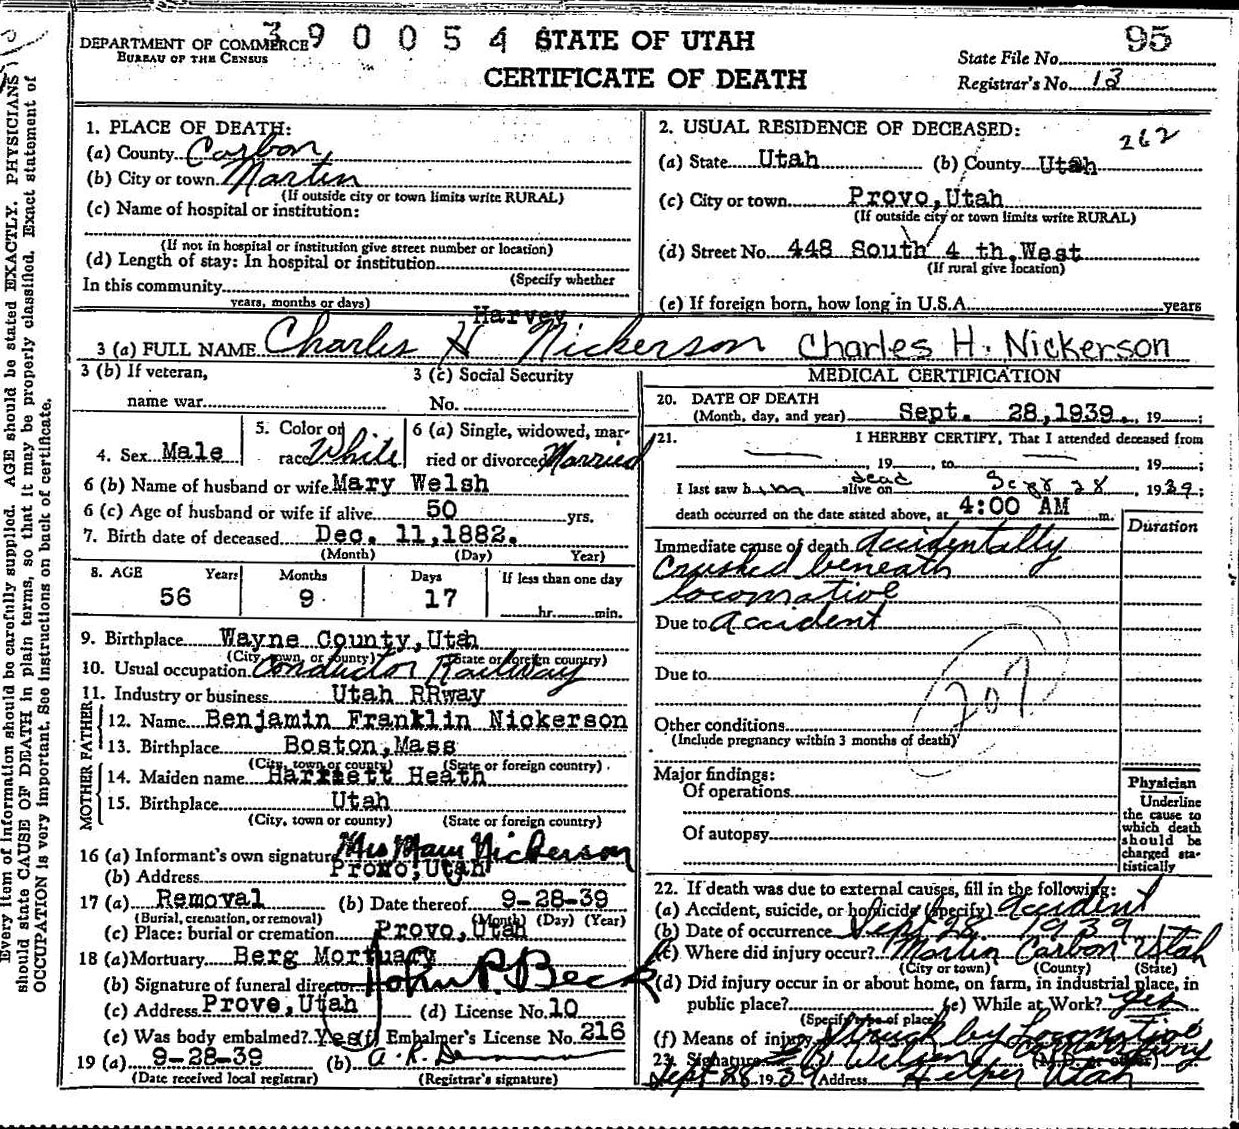 390054
95
DEPARTMENT OF COMMERCE
BUREAU OF THE CENSUS
STATE OF UTAH
CERTIFICATE OF DEATH
State File No.
Registrar's No. 13
Every item of information should be carefully supplied. AGE should be stated EXACTLY. PHYSICIANS
should state CAUSE OF DEATH in plain terms, so that it may be properly classified. Exact statement of
OCCUPATION is very important. See instructions on back of certificate.
1. PLACE OF DEATH:
(a) County Carbon
(b) City or town Martin
(If outside city or town limits write RURAL)
(c) Name of hospital or institution:
(If not in hospital or institution give street number or location)
(d) Length of stay: In hospital or institution
(Specify whether
In this community
years, months or days)
2. USUAL RESIDENCE OF DECEASED: 262
(a) State Utah (b) County Utah
(c) City or town Provo, Utah
(If outside city or town limits write RURAL)
(d) Street No. 448 South 4 th, West
(If rural give location)
(e) If foreign born, how long in U.S.A. years
Harvey
3 (a) FULL NAME Charles H Nickerson Charles H. Nickerson
3 (b) If veteran,
name war
3 (c) Social Security
No.
4. Sex Male
5. Color or
race White
6 (a) Single, widowed, mar-
ried or divorced Married
6 (b) Name of husband or wife Mary Welsh
6 (c) Age of husband or wife if alive 50 yrs.
7. Birth date of deceased Dec. 11, 1882.
(Month) (Day) Year)
8. AGE Years Months Days If less than one day
56 9 17 hr. min.
9. Birthplace Wayne County, Utah
(City, town or county) (State or foreign country)
10. Usual occupation Conductor Railway
11. Industry or business Utah RRway
FATHER
12. Name Benjamin Franklin Nickerson
13. Birthplace Boston, Mass
(City, town or county) (State or foreign country)
MOTHER
14. Maiden name Harriett Heath
15. Birthplace Utah
(City, town or county) (State or foreign country)
16 (a) Informant's own signature Mrs Mary Nickerson
(b) Address Provo, Utah
17 (a) Removal (b) Date thereof 9-28-39
(Burial, cremation, or removal) (Month) (Day) (Year)
(c) Place: burial or cremation Provo, Utah
18 (a) Mortuary Berg Mortuary
(b) Signature of funeral director John P. Beck
(c) Address Provo, Utah (d) License No. 10
(e) Was body embalmed? Yes (f) Embalmer's License No. 216
19 (a) 9-28-39 (b) A. R.
(Date received local registrar) (Registrar's signature)
MEDICAL CERTIFICATION
20. DATE OF DEATH
(Month, day, and year) Sept. 28, 1939., 19 ;
21. I HEREBY CERTIFY, That I attended deceased from
, 19 , to , 19 ;
I last saw him dead alive on Sept 28, 1939;
death occurred on the date stated above, at 4:00 AM m.
Duration
Immediate cause of death accidentally
crushed beneath
locomotive
Due to Accident
Due to
207
Other conditions
(Include pregnancy within 3 months of death)
Major findings:
Of operations
Of autopsy
Physician
Underline
the cause to
which death
should be
charged sta-
tistically
22. If death was due to external causes, fill in the following:
(a) Accident, suicide, or homicide (specify) Accident
(b) Date of occurrence Sept 28 1939
(c) Where did injury occur? Martin Carbon Utah
(City or town) (County) (State)
(d) Did injury occur in or about home, on farm, in industrial place, in
public place? (e) While at Work? yes
(Specify type of place)
(f) Means of injury Struck by Locomotive
23. Signature (M.D. or other)
Sept 28 1939 Address Helper Utah